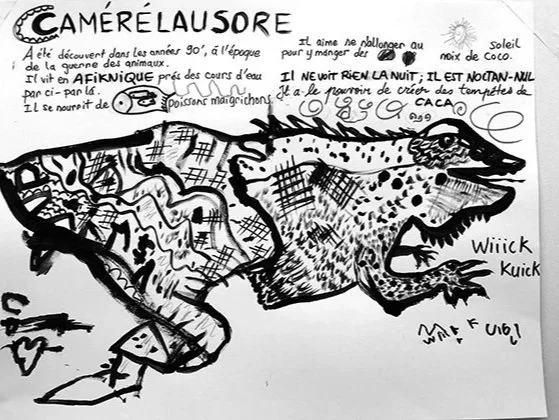 CAMÉRÉLAUSORE
A été découvert dans les années 90', à l'époque
de la guerre des animaux.
Il vit en AFIKNIQUE prés des cours d'eau
par ci-par là.
Il se nourrit de poissons maigrichons.
Il aime se rallonger au soleil
pour y manger des noix de coco.
Il NE VOIT RIEN LA NUIT ; IL EST NOCTAN-NUL
Il a le pouvoir de créer des tempêtes de
CACA
Wiiick
Kuick